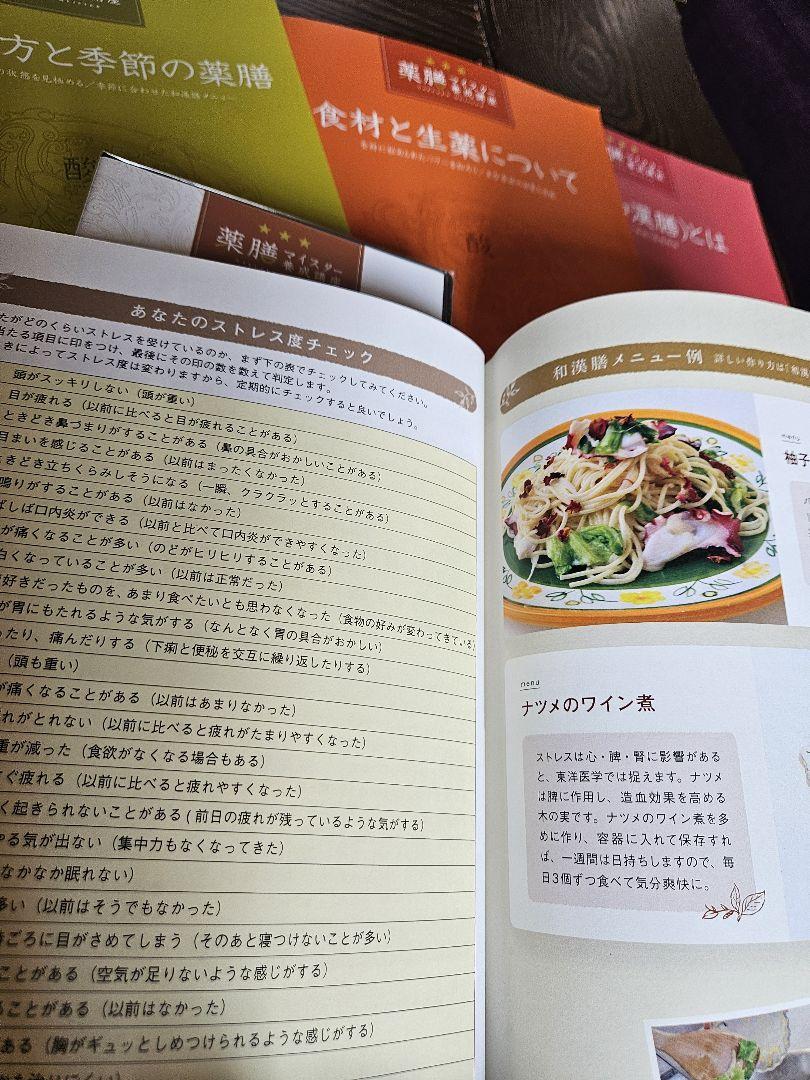 方と季節の薬膳
食材と生薬について
薬膳マイスター
漢膳)とは
薬膳マイスター
養成講座
あなたのストレス度チェック
たがどのくらいストレスを受けているのか、まず下の表でチェックしてみてください。
当たる項目に印をつけ、最後にその印の数を数えて判定します。
きによってストレス度は変わりますから、定期的にチェックすると良いでしょう。
頭がスッキリしない（頭が重い）
目が疲れる（以前に比べると目が疲れることがある）
ときどき鼻づまりがすることがある（鼻の具合がおかしいことがある）
目まいを感じることがある（以前はまったくなかった）
ときどき立ちくらみしそうになる（一瞬、クラクラッとすることがある）
鳴りがすることがある（以前はなかった）
ばしば口内炎ができる（以前と比べて口内炎ができやすくなった）
が痛くなることが多い（のどがヒリヒリすることがある）
白くなっていることが多い（以前は正常だった）
好きだったものを、あまり食べたいとも思わなくなった（食物の好みが変わってきている）
が胃にもたれるような気がする（なんとなく胃の具合がおかしい）
ったり、痛んだりする（下痢と便秘を交互に繰り返したりする）
（頭も重い）
が痛くなることがある（以前はあまりなかった）
れがとれない（以前に比べると疲れがたまりやすくなった）
重が減った（食欲がなくなる場合もある）
ぐ疲れる（以前に比べると疲れやすくなった）
く起きられないことがある(前日の疲れが残っているような気がする）
やる気が出ない（集中力もなくなってきた）
なかなか眠れない）
多い（以前はそうでもなかった）
時ごろに目がさめてしまう（そのあと寝つけないことが多い）
ことがある（空気が足りないような感じがする）
ることがある（以前はなかった）
ある（胸がギュッとしめつけられるような感じがする）
和漢膳メニュー例 詳しい作り方は「和漢
柚子
menu
ナツメのワイン煮
ストレスは心・脾・腎に影響がある
と、東洋医学では捉えます。ナツメ
は脾に作用し、造血効果を高める
木の実です。ナツメのワイン煮を多
めに作り、容器に入れて保存すれ
ば、一週間は日持ちしますので、毎
日3個ずつ食べて気分爽快に。